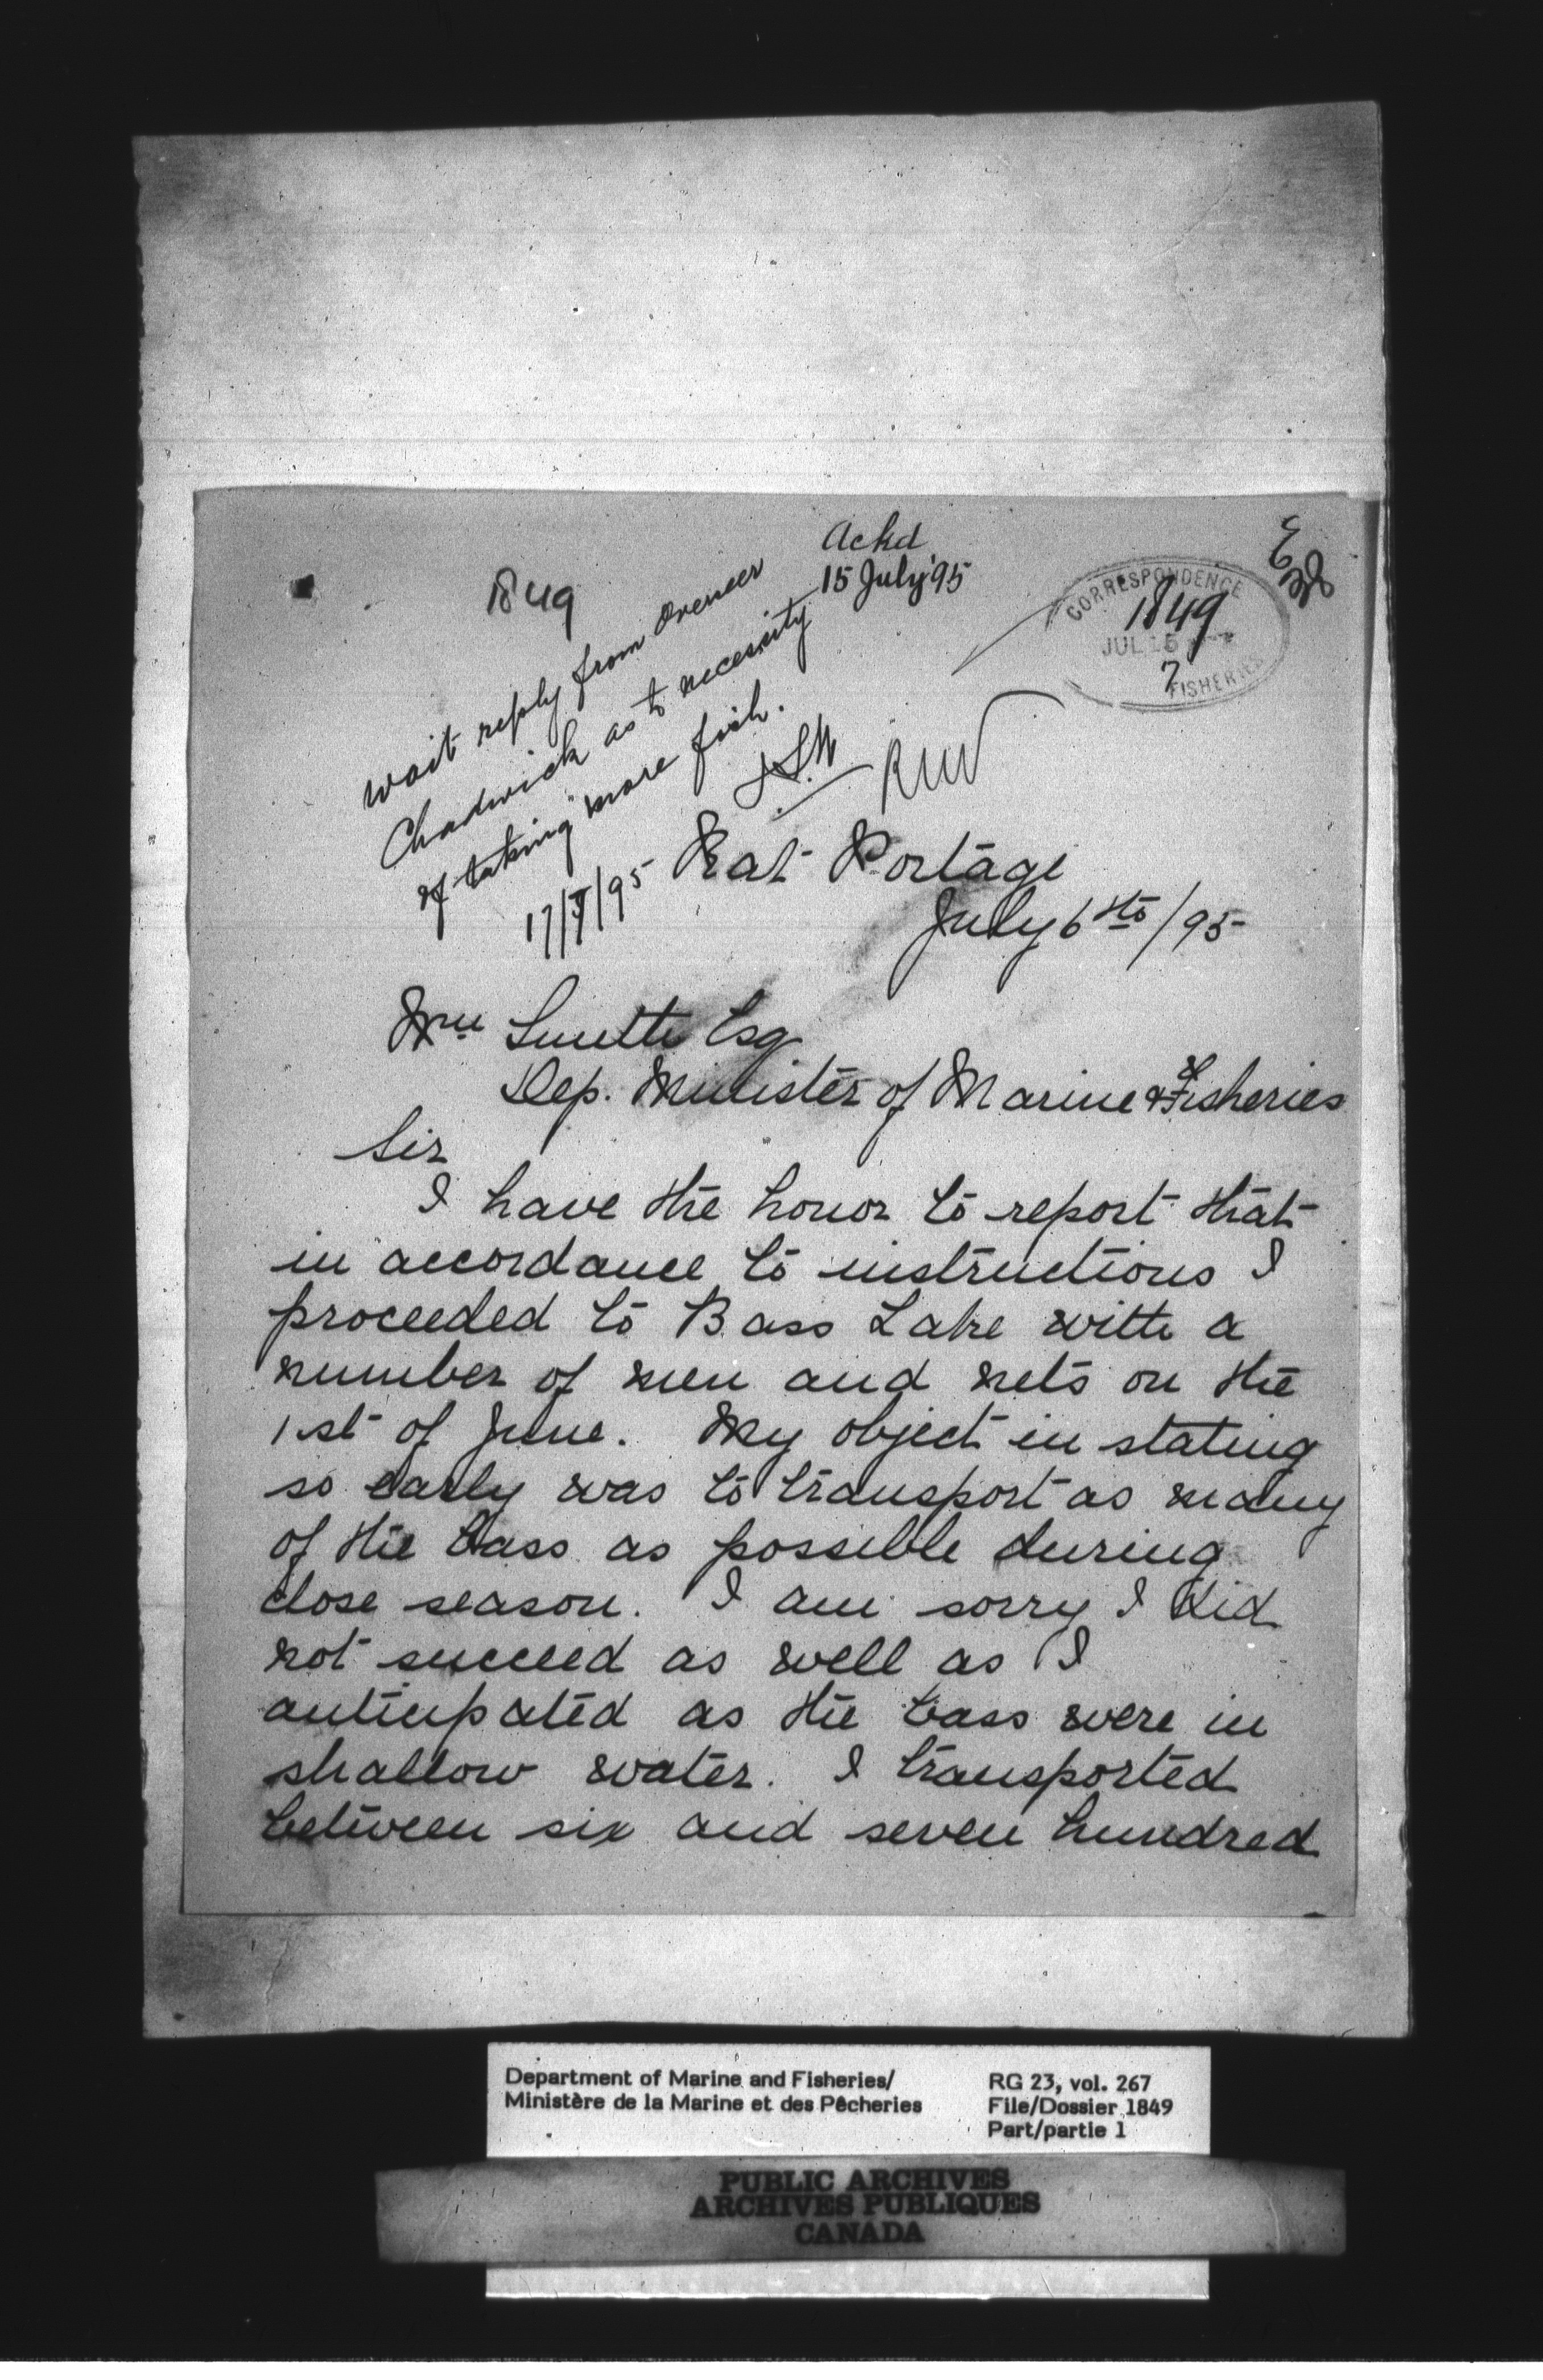 1849
Ackd
15 July '95
CORRESPONDENCE
1849
JUL 15
7
FISHERIES
wait reply from Overseer
Chadwick as to necessity
of taking more fish.
17/7/95
RW
Rat Portage
July 6th/95
Wm Smith Esq
Dep. Minister of Marine & Fisheries
Sir
I have the honor to report that
in accordance to instructions I
proceeded to Bass Lake with a
number of men and nets on the
1st of June. My object in stating
so early was to transport as many
of the bass as possible during
close season. I am sorry I did
not succeed as well as I
anticipated as the bass were in
shallow water. I transported
between six and seven hundred
Department of Marine and Fisheries/
Ministère de la Marine et des Pêcheries
RG 23, vol. 267
File/Dossier 1849
Part/partie 1
PUBLIC ARCHIVES
ARCHIVES PUBLIQUES
CANADA